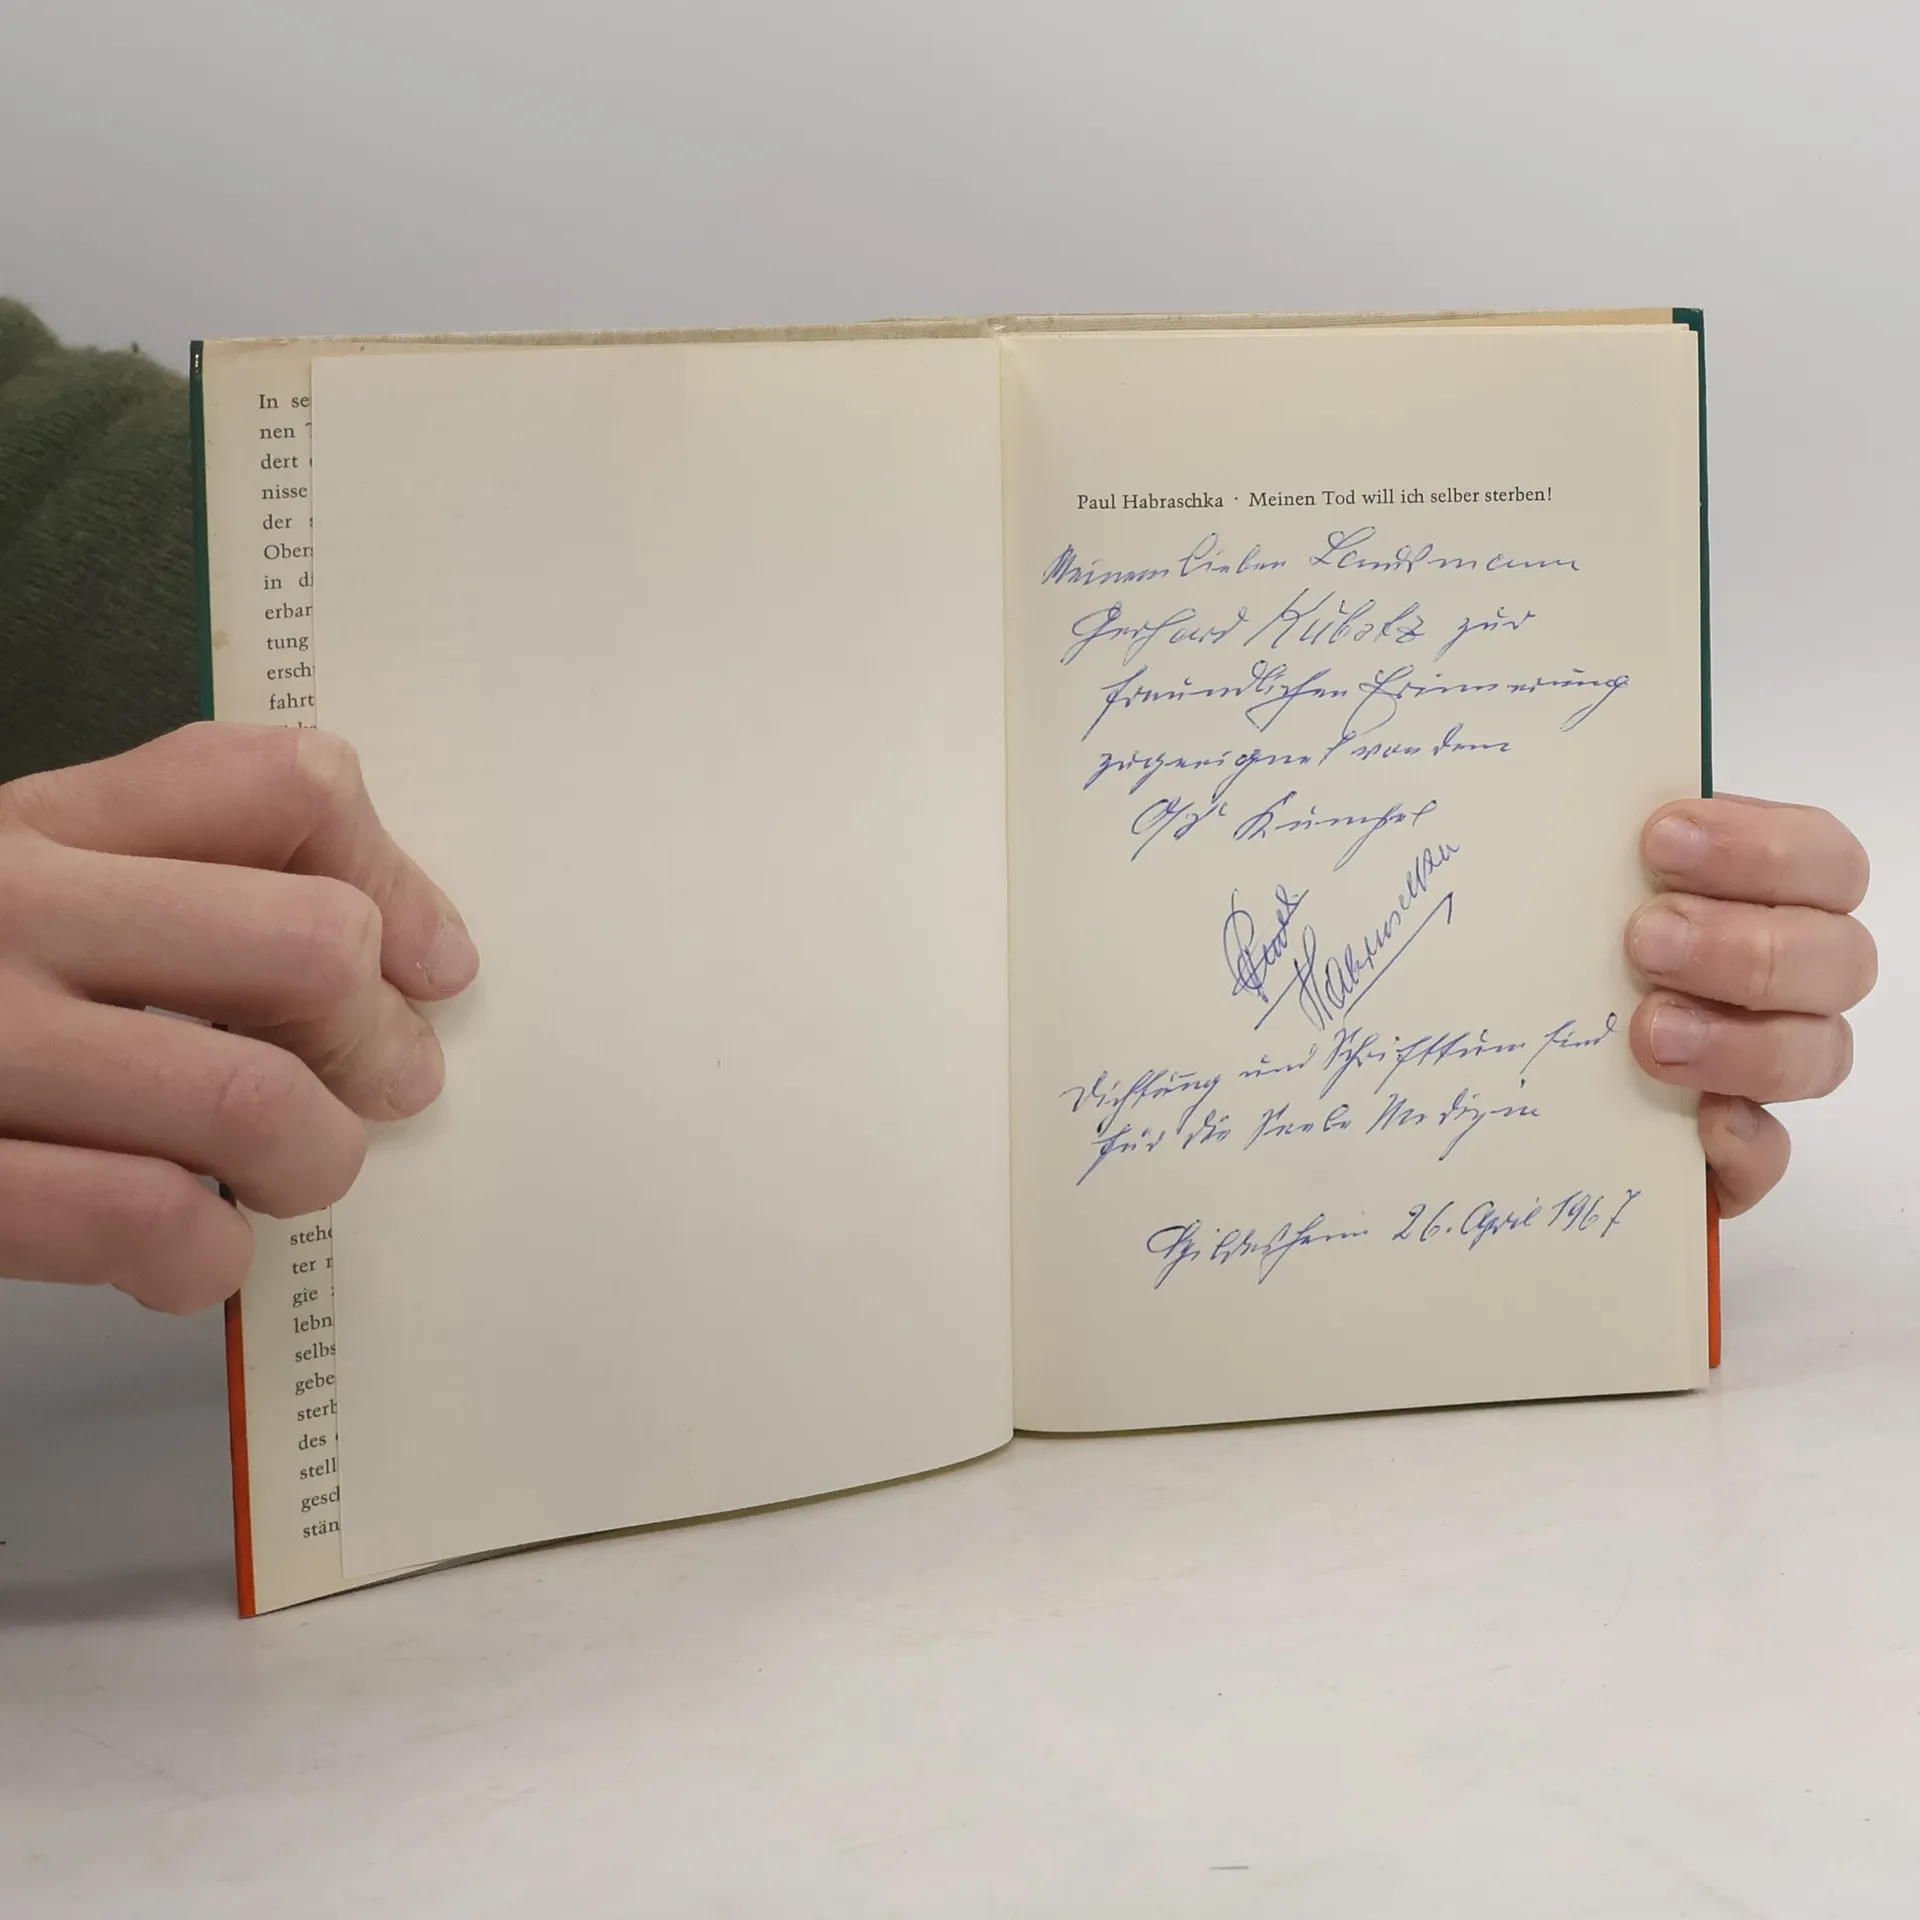 In se
nen
dert
nisse
der
Obers
in di
erbar
tung
ersch
fahrt
stehe
ter r
gie
lebn
selbs
gebe
sterb
des
stell
gesch
stän
Paul Habraschka · Meinen Tod will ich selber sterben!
Meinem lieben Landsmann
Gerhard Kubatz zur
freundlichen Erinnerung
zugeeignet von dem
Kumpel
Paul
Habraschka
Dichtung und Schrifttum sind
für die Seele Medizin
Hildesheim 26. April 1967